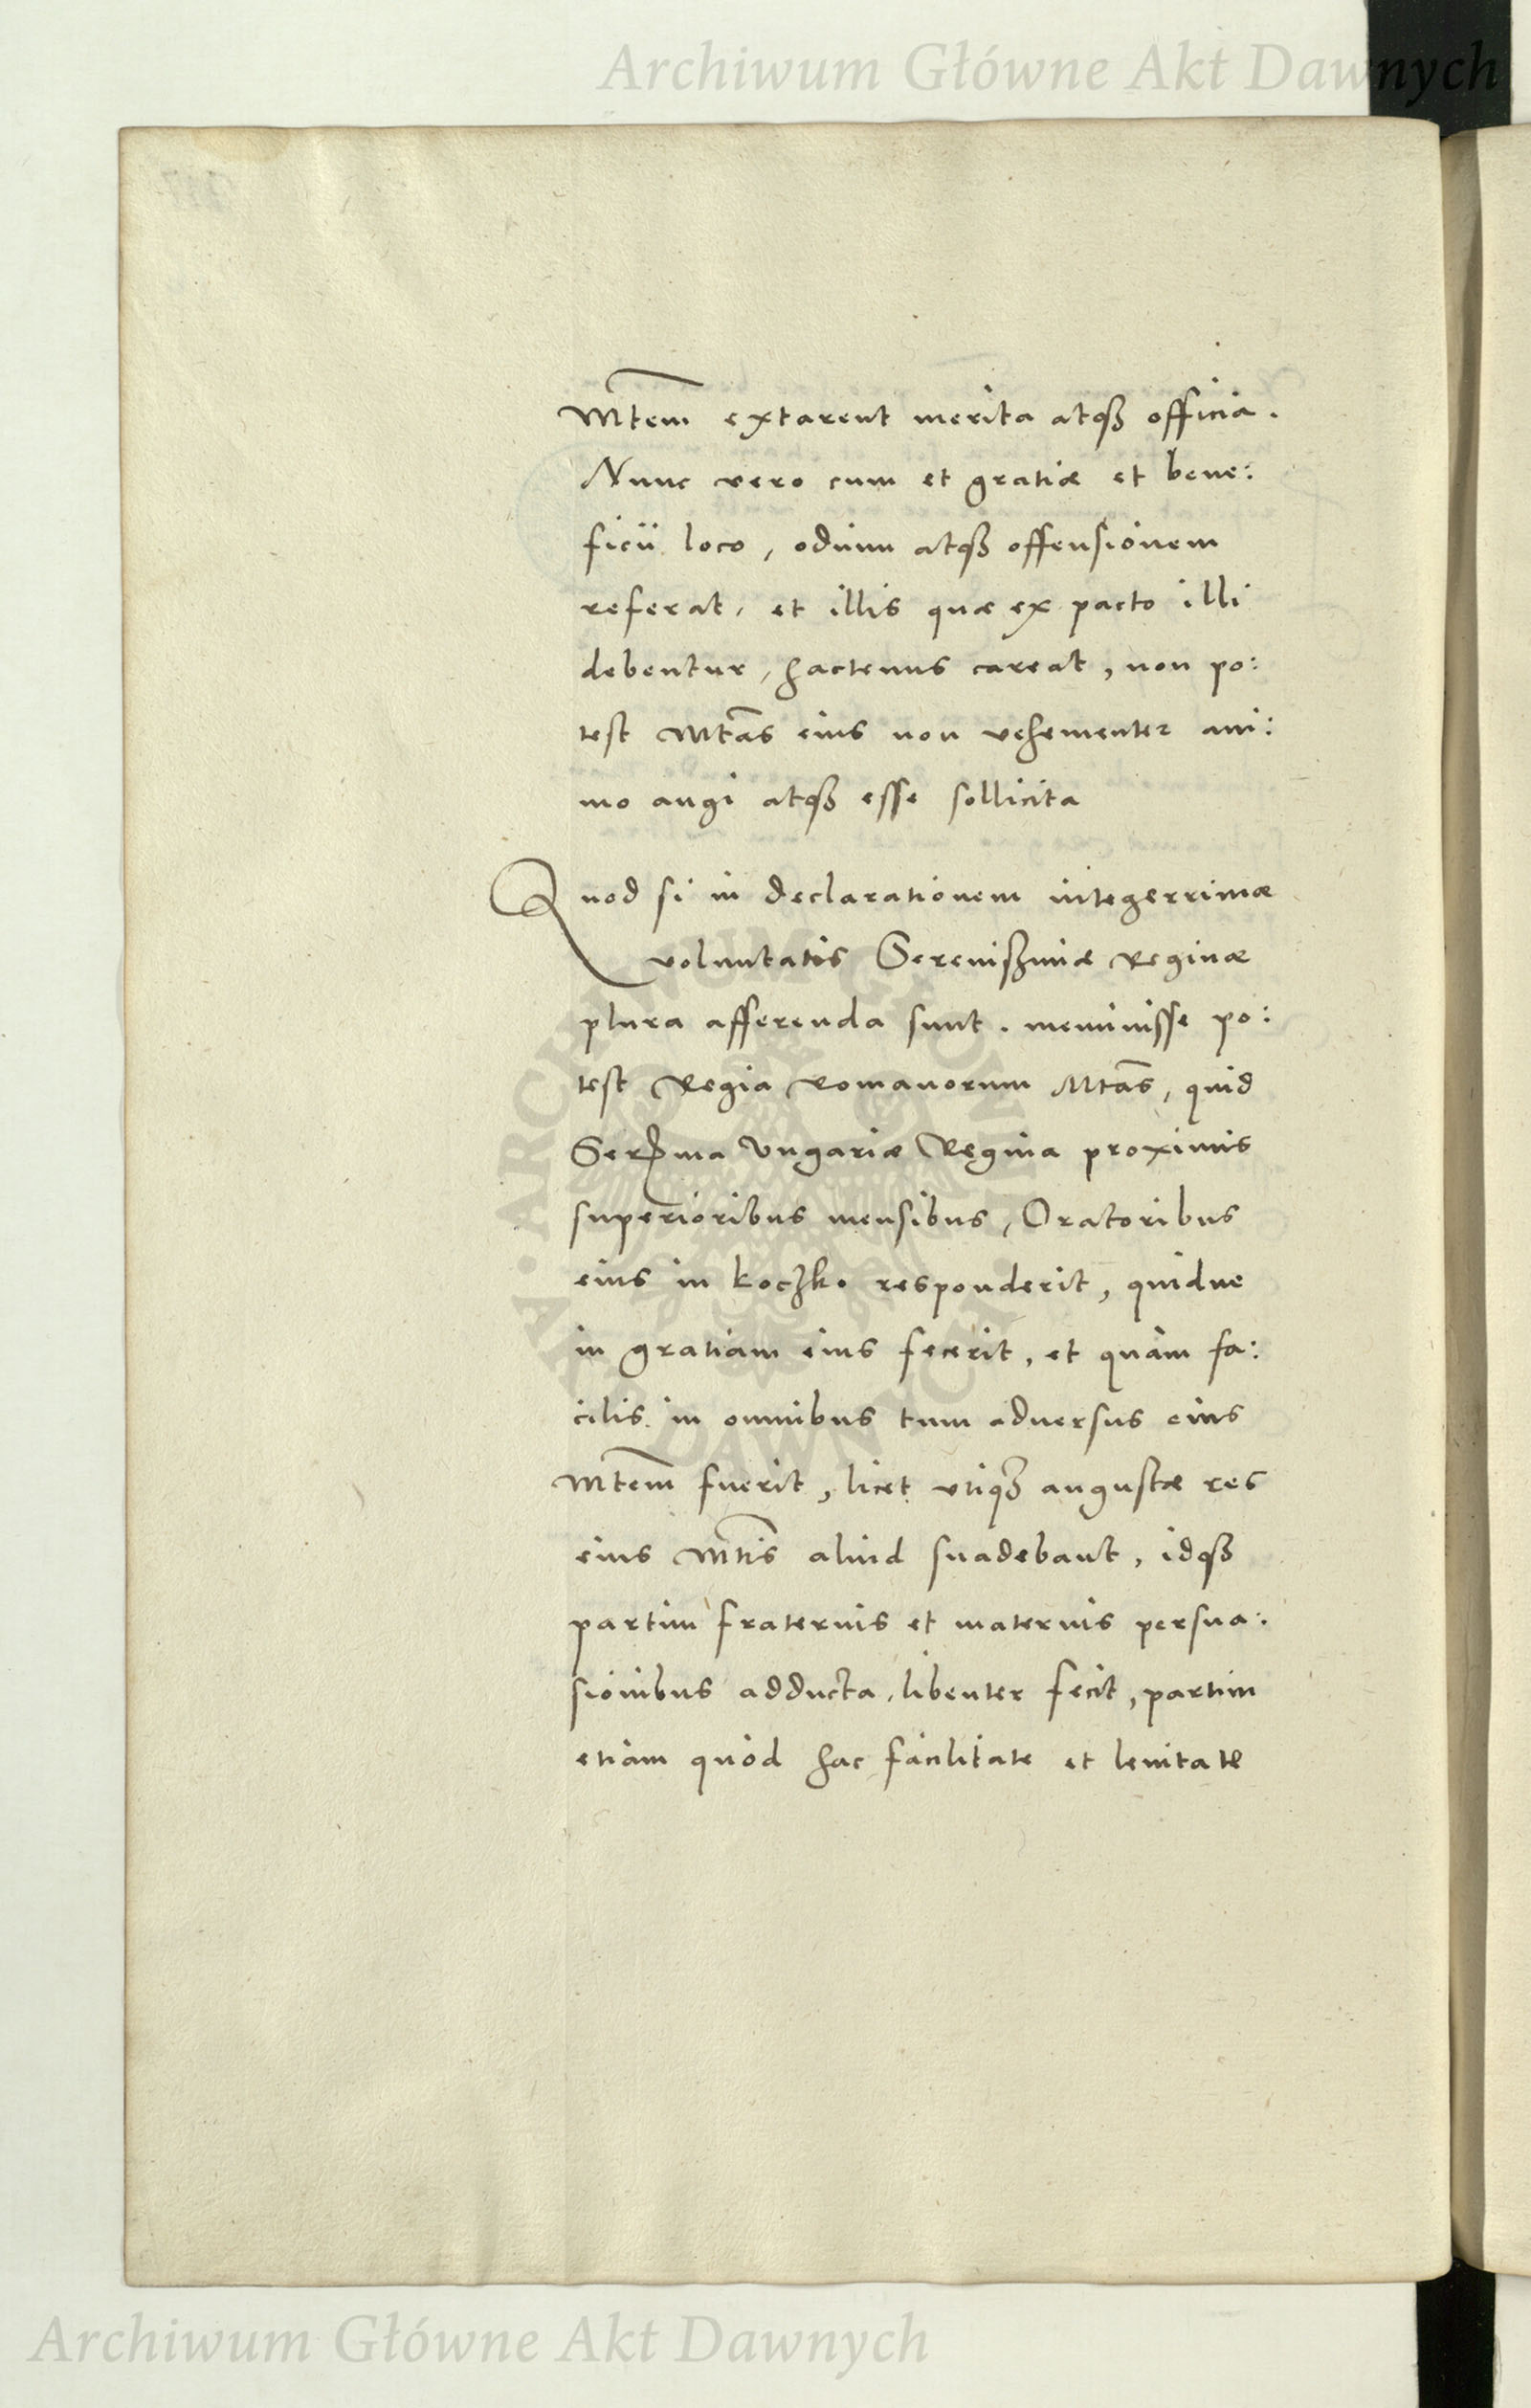 Archiwum Główne Akt Dawnych
Mtem extarent merita atqȝ officia.
Nunc vero cum et gratiæ et bene:
ficii loco, odium atqȝ offensionem
referat, et illis quæ ex pacto illi
debentur, hactenus careat, non po:
test Mtas eius non vehementer ani:
mo angi atqȝ esse sollicita
Quod si in declarationem integerrimæ
voluntatis Sereniszimæ Reginæ
plura afferenda sunt. meminisse po:
test Regia Romanorum Mtas, quid
Serma Ungariæ Regina proximis
superioribus mensibus, Oratoribus
eius in koczko responderit, quidue
in gratiam eius fecerit, et quam fa:
cilis in omnibus tum aduersus eius
Mtem fuerit, licet vtiqȝ angustæ res
eius Mtis aliud suadebant, idqȝ
partim fraternis et maternis persua:
sionibus adducta, libenter fecit, partim
etiam quod hac facilitate et lenitate
Archiwum Główne Akt Dawnych